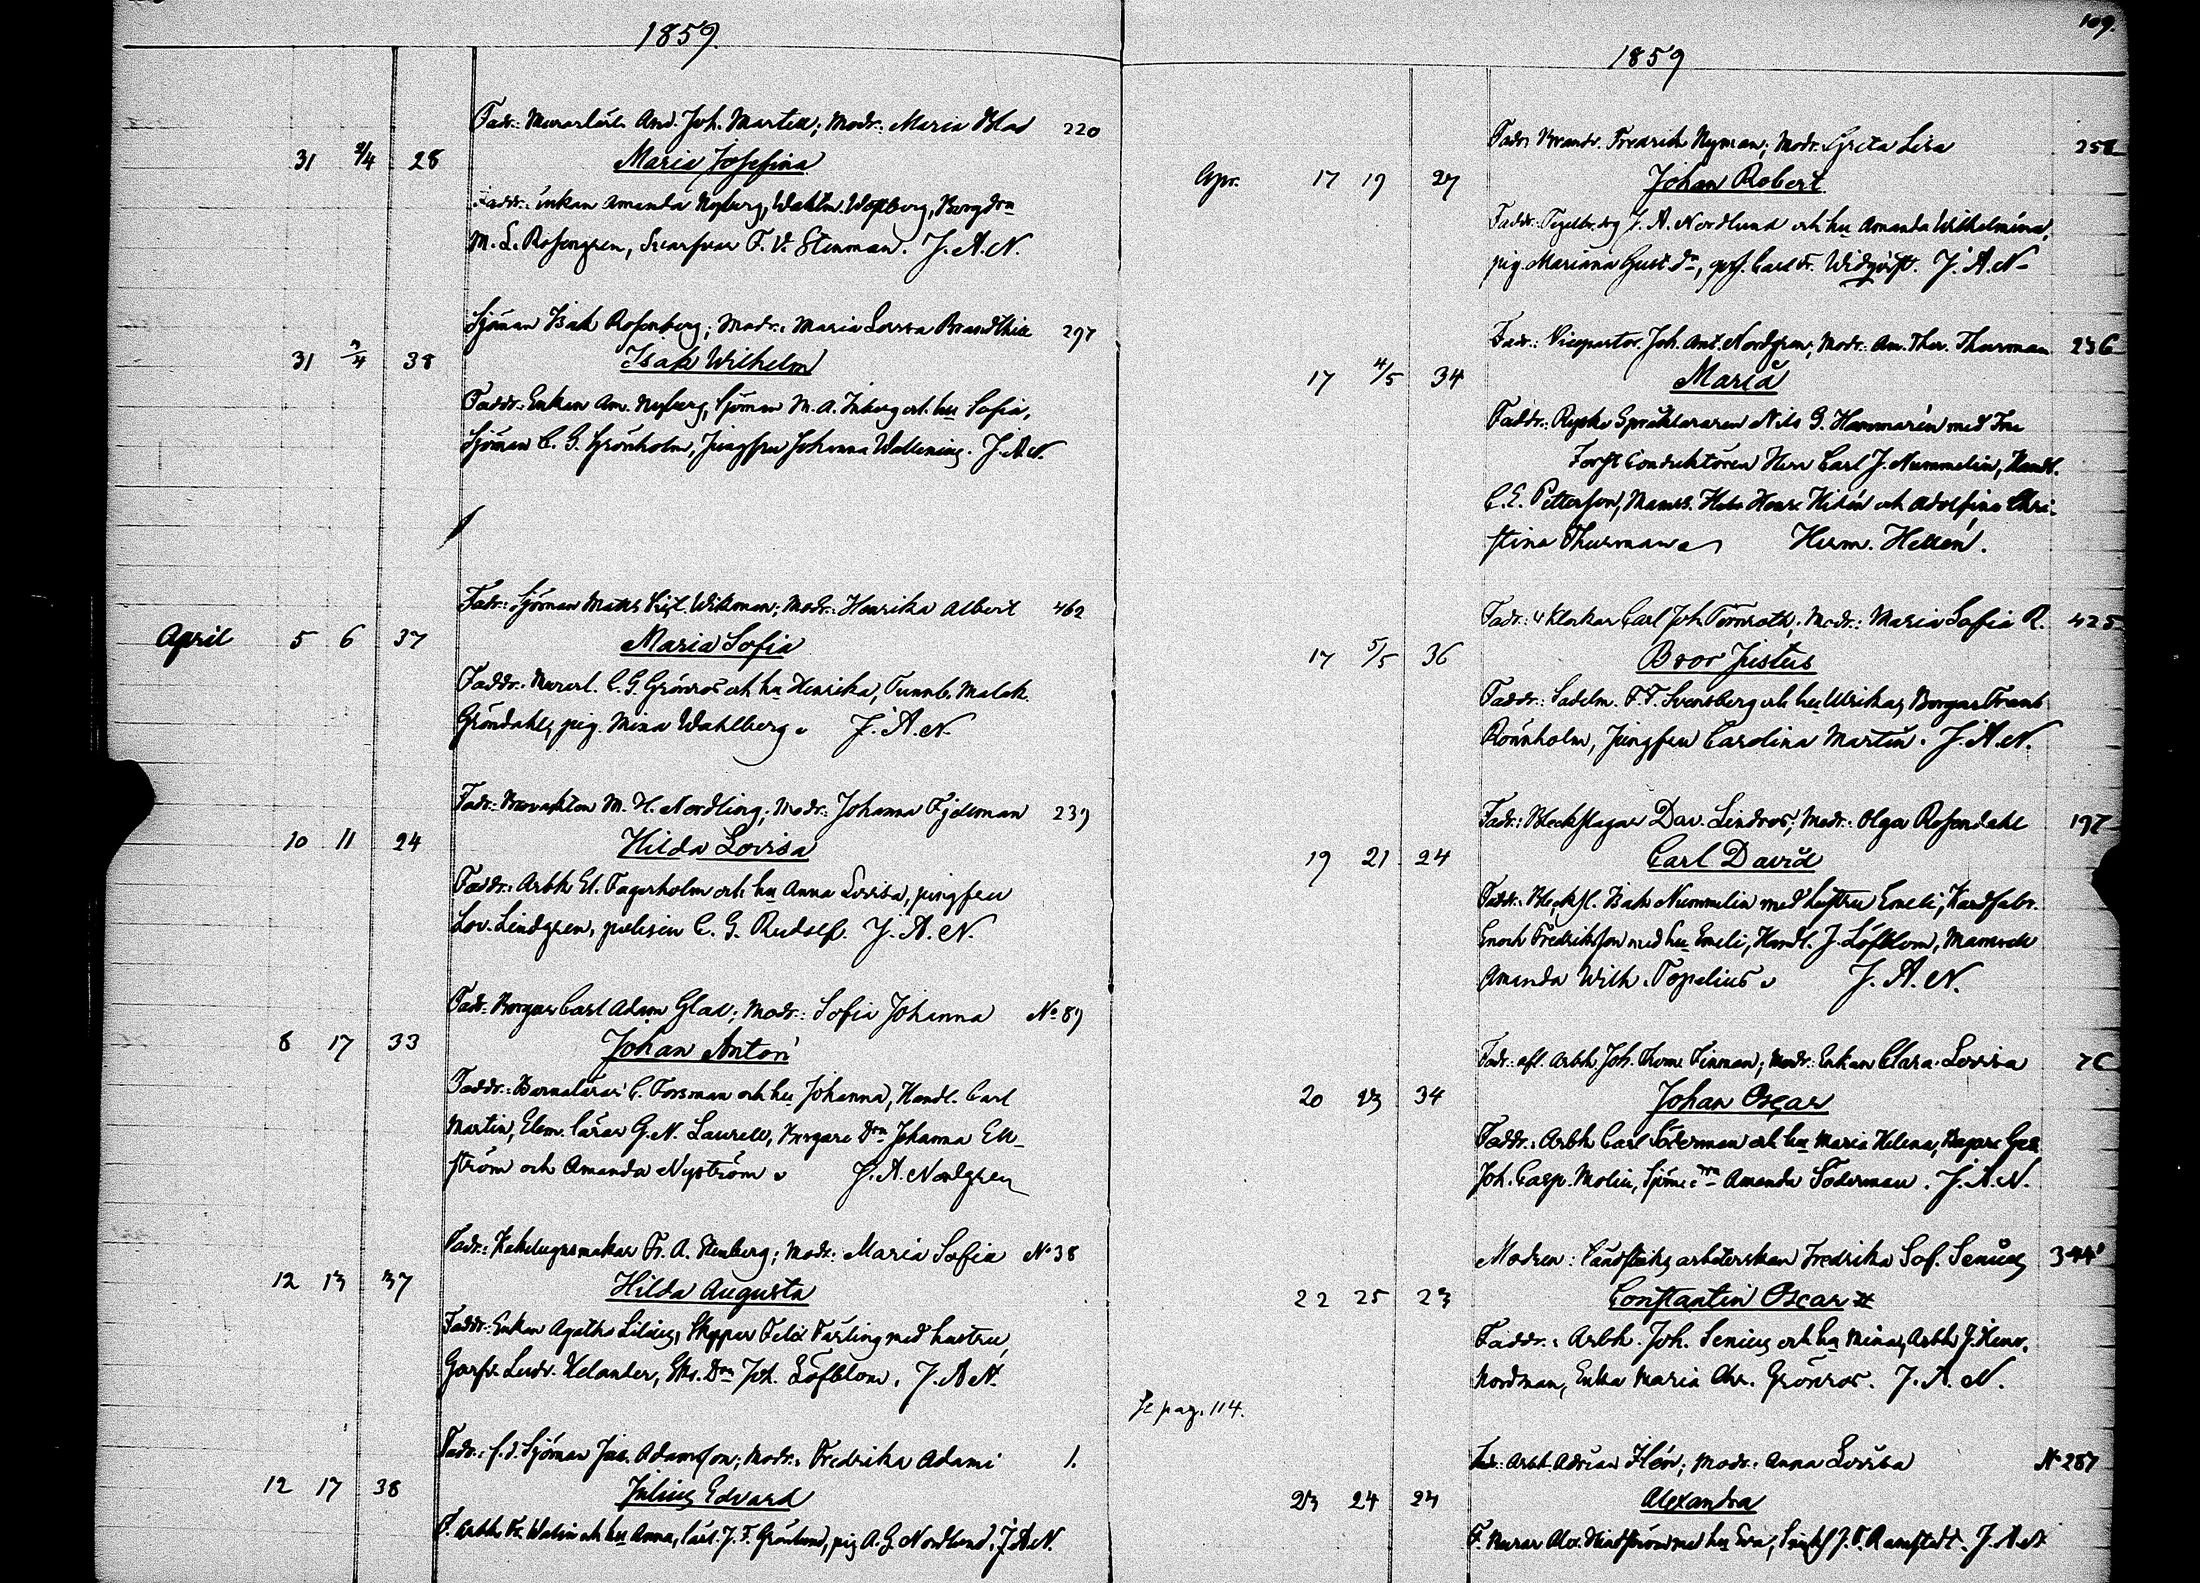 1859.
Fadr: And. Joh. Martin; Modr: Maria
220
31 3/4 28
Maria Josefina
Faddr: enkan Amanda Nyberg,
M. L. Rosengren, F. V. Stenman. J. A. N.
Sjöman Isak Rosenberg; Modr: Maria Lovisa
297
31 7/4 38
Isak Wilhelm
Faddr: Enkan Am. Nyberg, Sjöman M. A. och hu Sofia,
Sjöman C. G. Grönholm, Jungfru Johanna Wallenius. J. A. N.
Fadr: Sjöman Wikman; Modr: Henrika Albert
462
April 5 6 37
Maria Sofia
Faddr: C. G. Grönroos och hu Henrika, Tunnb. Malak.
Gröndahl, pig. Mina Wahlberg. J. A. N.
Fadr: M. H. Nordling; Modr: Johanna
239
10 11 24
Hilda Lovisa
Faddr: Arbk. Fagerholm och hu Anna Lovisa, jungfru
Lov. Lindgren, C. G. Rudolf. J. A. N.
Fadr: Borgar Carl Adam Glad; Modr: Sofia Johanna
No 89
8 17 33
Johan Anton
Faddr: Barnalärar C. Forsman och hu Johanna, Handl. Carl
Martin, Elem. lärar G. N. Laurell, Borgare Dn Johanna Ek-
ström och Amanda Nyström J. A. Nordgren
Fadr: Kakelugnsmakar Fr. A. Stenberg; Modr: Maria Sofia
No 38
12 13 37
Hilda Augusta
Faddr: Enkan Agatha Lilius, Skeppar Felix Färling med hustru,
Garfv. Ludv. Helander, Joh. Löfblom. J. A. N.
Fadr: f. d. Sjöman Jac. Adamsson; Modr: Fredrika Adami
1.
12 17 38
Julius Edvard
F. Arbk. och hu Anna, J. F. Grönlund, pig A. G. Nordlund. J. A. N.
109.
1859
Fadr: Fredrich Nyman; Modr: Greta Lisa
258
Apr. 17 19 27
Johan Robert
Faddr: J. A. Nordlund och hu Amanda Wilhelmina,
pig Mariana Gust. Dn, Carl Fr. Widqvist. J. A. N.
Fadr: Vicepastor Joh. Ant. Nordgren; Modr: Am. Ther. Thurman
236
17 4/5 34
Maria
Faddr: Ryska Språkläraren Nils G. Hammarén med Fru
Forst Conduktören Herr Carl J. Nummelin, Handl.
C. E. Petterson, Mamss. och Adolfina Chri-
stina Thurman Herm. Hellén.
Fadr: Klockar Carl Joh. Törnroth; Modr: Maria Sofia R.
425
17 5/5 36
Bror Justus
Faddr: Sadelm. F. F. Svensberg och hu Ulrika, Borgar Frans
Rönnholm, Jungfru Carolina Martin. J. A. N.
Fadr: Bleckslagar Dav. Lindros; Modr: Olga Rosendahl
197
19 21 24
Carl David
Faddr: Blecksl. Isak Nummelin med hustru Emeli, Kardfabr.
Enoch Fredriksson med hu Emeli, Handl. J. Löfblom, Mamsell
Amanda Wilh. Topelius J. A. N.
Fadr: afl. Arbk. Joh. Thom. Finman; Modr: Enkan Clara Lovisa
76
20 23 34
Johan Oscar
Faddr: Arbk. Carl Söderman och hu Maria Helena, Bagare
Joh. Casp. Molin, Amanda Söderman. J. A. N.
Modren: arbeterskan Fredrika Sof. Senius
344
22 25 23
Constantin Oscar
Faddr: Arbk. Joh. Senius och hu Mina, Arbk. J. Henr.
Nordman, Enka Maria Chr. Grönroos. J. A. N.
Se pag. 114.
Fadr: Arbk. Adrian; Modr: Anna Lovisa
No 287
23 24 23
Alexandra
F. Murar Alex. med hu Eva, J. O. Ramstedt. J. A. N.